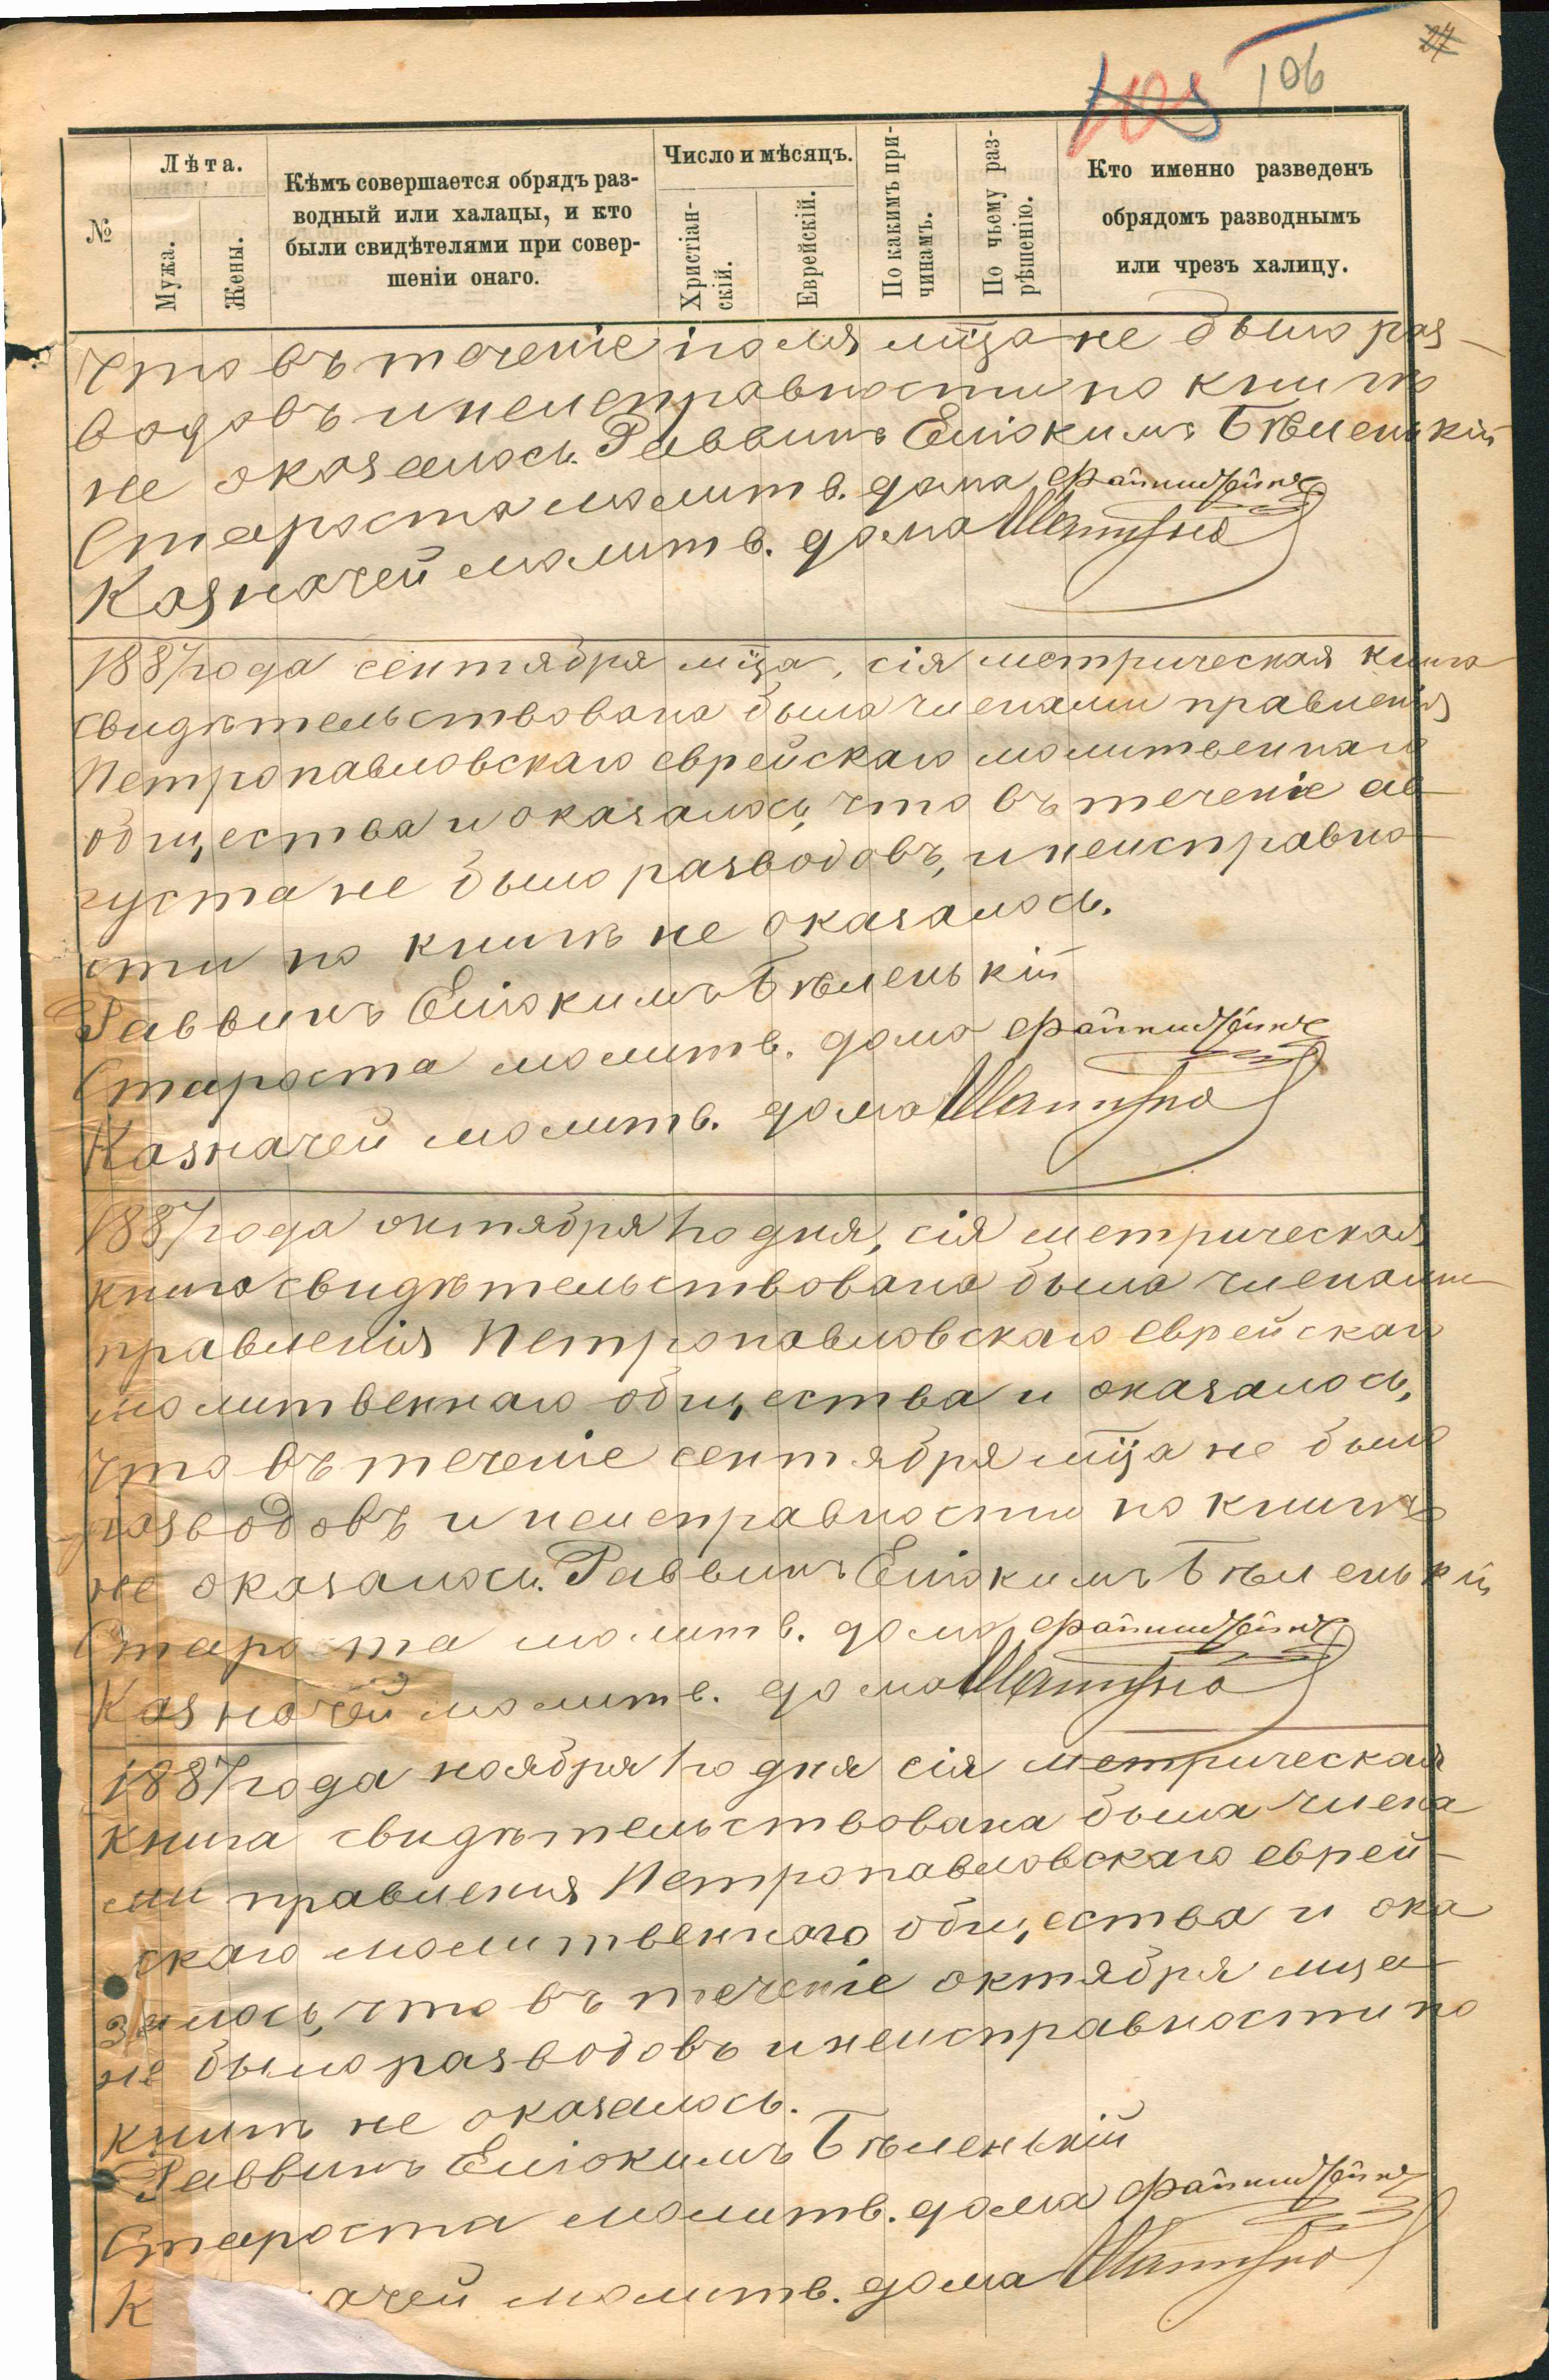 24
105 106
№
Лѣта.
Мужа.
Жены.
Кѣмъ совершается обрядъ раз-
водный или халацы, и кто
были свидѣтелями при совер-
шеніи онаго.
Число и мѣсяцъ.
Христіан-
скій.
Еврейскій.
По какимъ при-
чинамъ.
По чьему раз-
рѣшенію.
Кто именно разведенъ
обрядомъ разводнымъ
или чрезъ халицу.
что въ теченіе іюля мца не было раз-
водовъ и неисправности по книгѣ
не оказалось. Раввинъ Еліокимъ Бѣленькій
Староста молитв. дома
Казначей молитв. дома Шапиро
1887 года сентября мца, сія метрическая книга
свидѣтельствована была членами правленія
Петропавловскаго еврейскаго молитвеннаго
общества и оказалось, что въ теченіе ав-
густа не было разводовъ, и неисправно-
сти по книгѣ не оказалось.
Раввинъ Еліокимъ Бѣленькій
Староста молитв. дома
Казначей молитв. дома Шапиро
1887 года октября 1го дня, сія метрическая
книга свидѣтельствована была членами
правленія Петропавловскаго еврейскаго
молитвеннаго общества и оказалось,
что въ теченіе сентября мца не было
разводовъ и неисправности по книгѣ
не оказалось. Раввинъ Еліокимъ Бѣленькій
Староста молитв. дома
Казначей молитв. дома Шапиро
1887 года ноября 1го дня сія метрическая
книга свидѣтельствована была члена
ми правленія Петропавловскаго еврей-
скаго молитвеннаго общества и ока
залось, что въ теченіе октября мца
не было разводовъ и неисправности по
книгѣ не оказалось.
Раввинъ Еліокимъ Бѣленькій
Староста молитв. дома
К ачей молитв. дома Шапиро